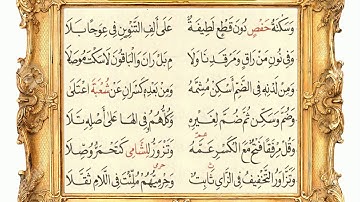 وَسَكْتَةُ حَفْصٍ دُونَ قَطْعٍ لَطِيفَةٌ عَلَى أَلِفِ التَّنْوِينِ فِي عِوَجًا بَلَا
وَفِي نُونِ مَنْ رَاقٍ وَمَرْقَدِنَا وَلَا مِ بَلْ رَانَ وَالْبَاقُونَ لَا سَكْتَ مُوصَلَا
وَمِنْ لَدْنِهِ فِي الضَّمِّ أَسْكِنْ مُشِمَّهُ وَمِنْ بَعْدِهِ كَسْرَانِ عَنْ شُعْبَةَ اعْتَلَى
وَضُمَّ وَسَكِّنْ ثُمَّ ضُمَّ لِغَيْرِهِ وَكُلُّهُمُ فِي الْهَا عَلَى أَصْلِهِ تَلَا
وَقُلْ مِرْفَقًا فَتْحٌ مَعَ الْكَسْرِ عَمَّهُ وَتَزْوَرُّ لِلشَّامِي كَتَحْمَرُّ وُصِّلَا
وَتَزَّاوَرُ التَّخْفِيفُ فِي الزَّايِ ثَابِتٌ وَحِرْمِيُّهُمْ مُلِّئْتَ فِي اللَّامِ ثَقَّلَا